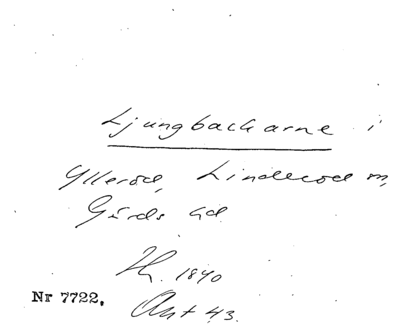 Ljungbackarne i
Ylleröd, Linderöd sn,
Gärds hd
Th. 1840
Nr 7722.
Akt 43.